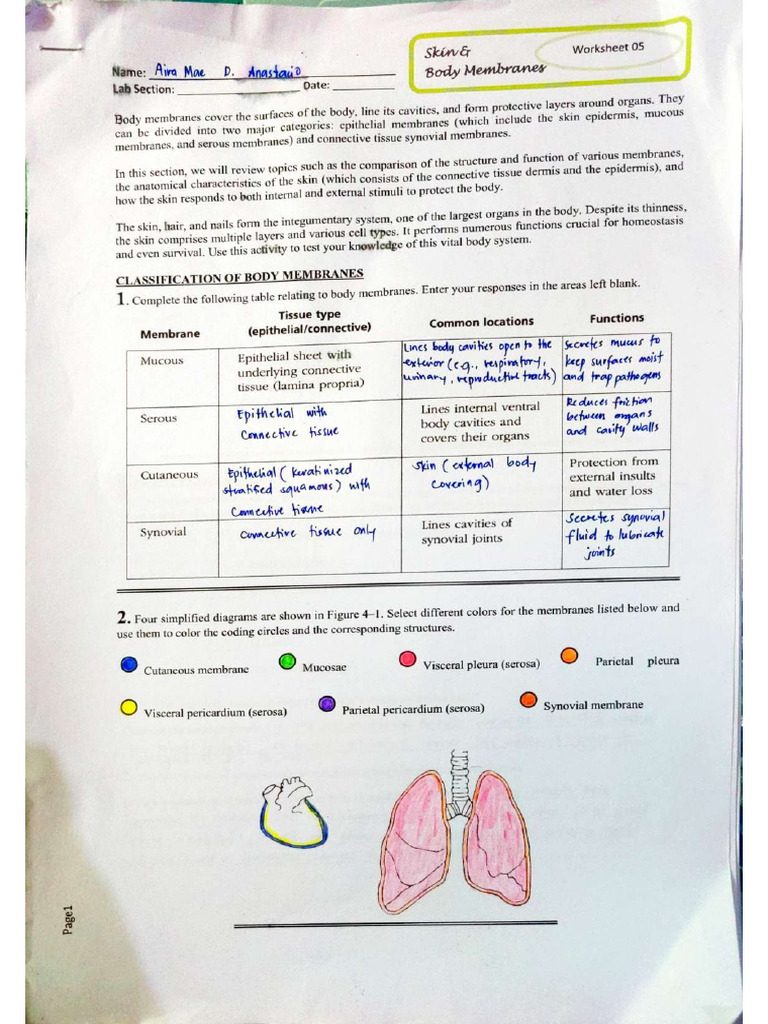 Skin &
Body Membranes
Worksheet 05
Name: Aira Mae D. Anastacio
Lab Section:
Date:
Body membranes cover the surfaces of the body, line its cavities, and form protective layers around organs. They
can be divided into two major categories: epithelial membranes (which include the skin epidermis, mucous
membranes, and serous membranes) and connective tissue synovial membranes.
In this section, we will review topics such as the comparison of the structure and function of various membranes,
the anatomical characteristics of the skin (which consists of the connective tissue dermis and the epidermis), and
how the skin responds to both internal and external stimuli to protect the body.
The skin, hair, and nails form the integumentary system, one of the largest organs in the body. Despite its thinness,
the skin comprises multiple layers and various cell types. It performs numerous functions crucial for homeostasis
and even survival. Use this activity to test your knowledge of this vital body system.
CLASSIFICATION OF BODY MEMBRANES
1. Complete the following table relating to body membranes. Enter your responses in the areas left blank.
Membrane
Tissue type
(epithelial/connective)
Common locations
Functions
Mucous
Epithelial sheet with
underlying connective
tissue (lamina propria)
Lines body cavities open to the
exterior (e.g., respiratory,
urinary, reproductive tracts)
Secretes mucus to
keep surfaces moist
and trap pathogens
Serous
Epithelial with
Connective tissue
Lines internal ventral
body cavities and
covers their organs
Reduces friction
between organs
and cavity walls
Cutaneous
Epithelial (keratinized
stratified squamous) with
Connective tissue
Skin (external body
covering)
Protection from
external insults
and water loss
Synovial
Connective tissue only
Lines cavities of
synovial joints
Secretes synovial
fluid to lubricate
joints
2. Four simplified diagrams are shown in Figure 4–1. Select different colors for the membranes listed below and
use them to color the coding circles and the corresponding structures.
Cutaneous membrane
Mucosae
Visceral pleura (serosa)
Parietal pleura
Visceral pericardium (serosa)
Parietal pericardium (serosa)
Synovial membrane
Page1